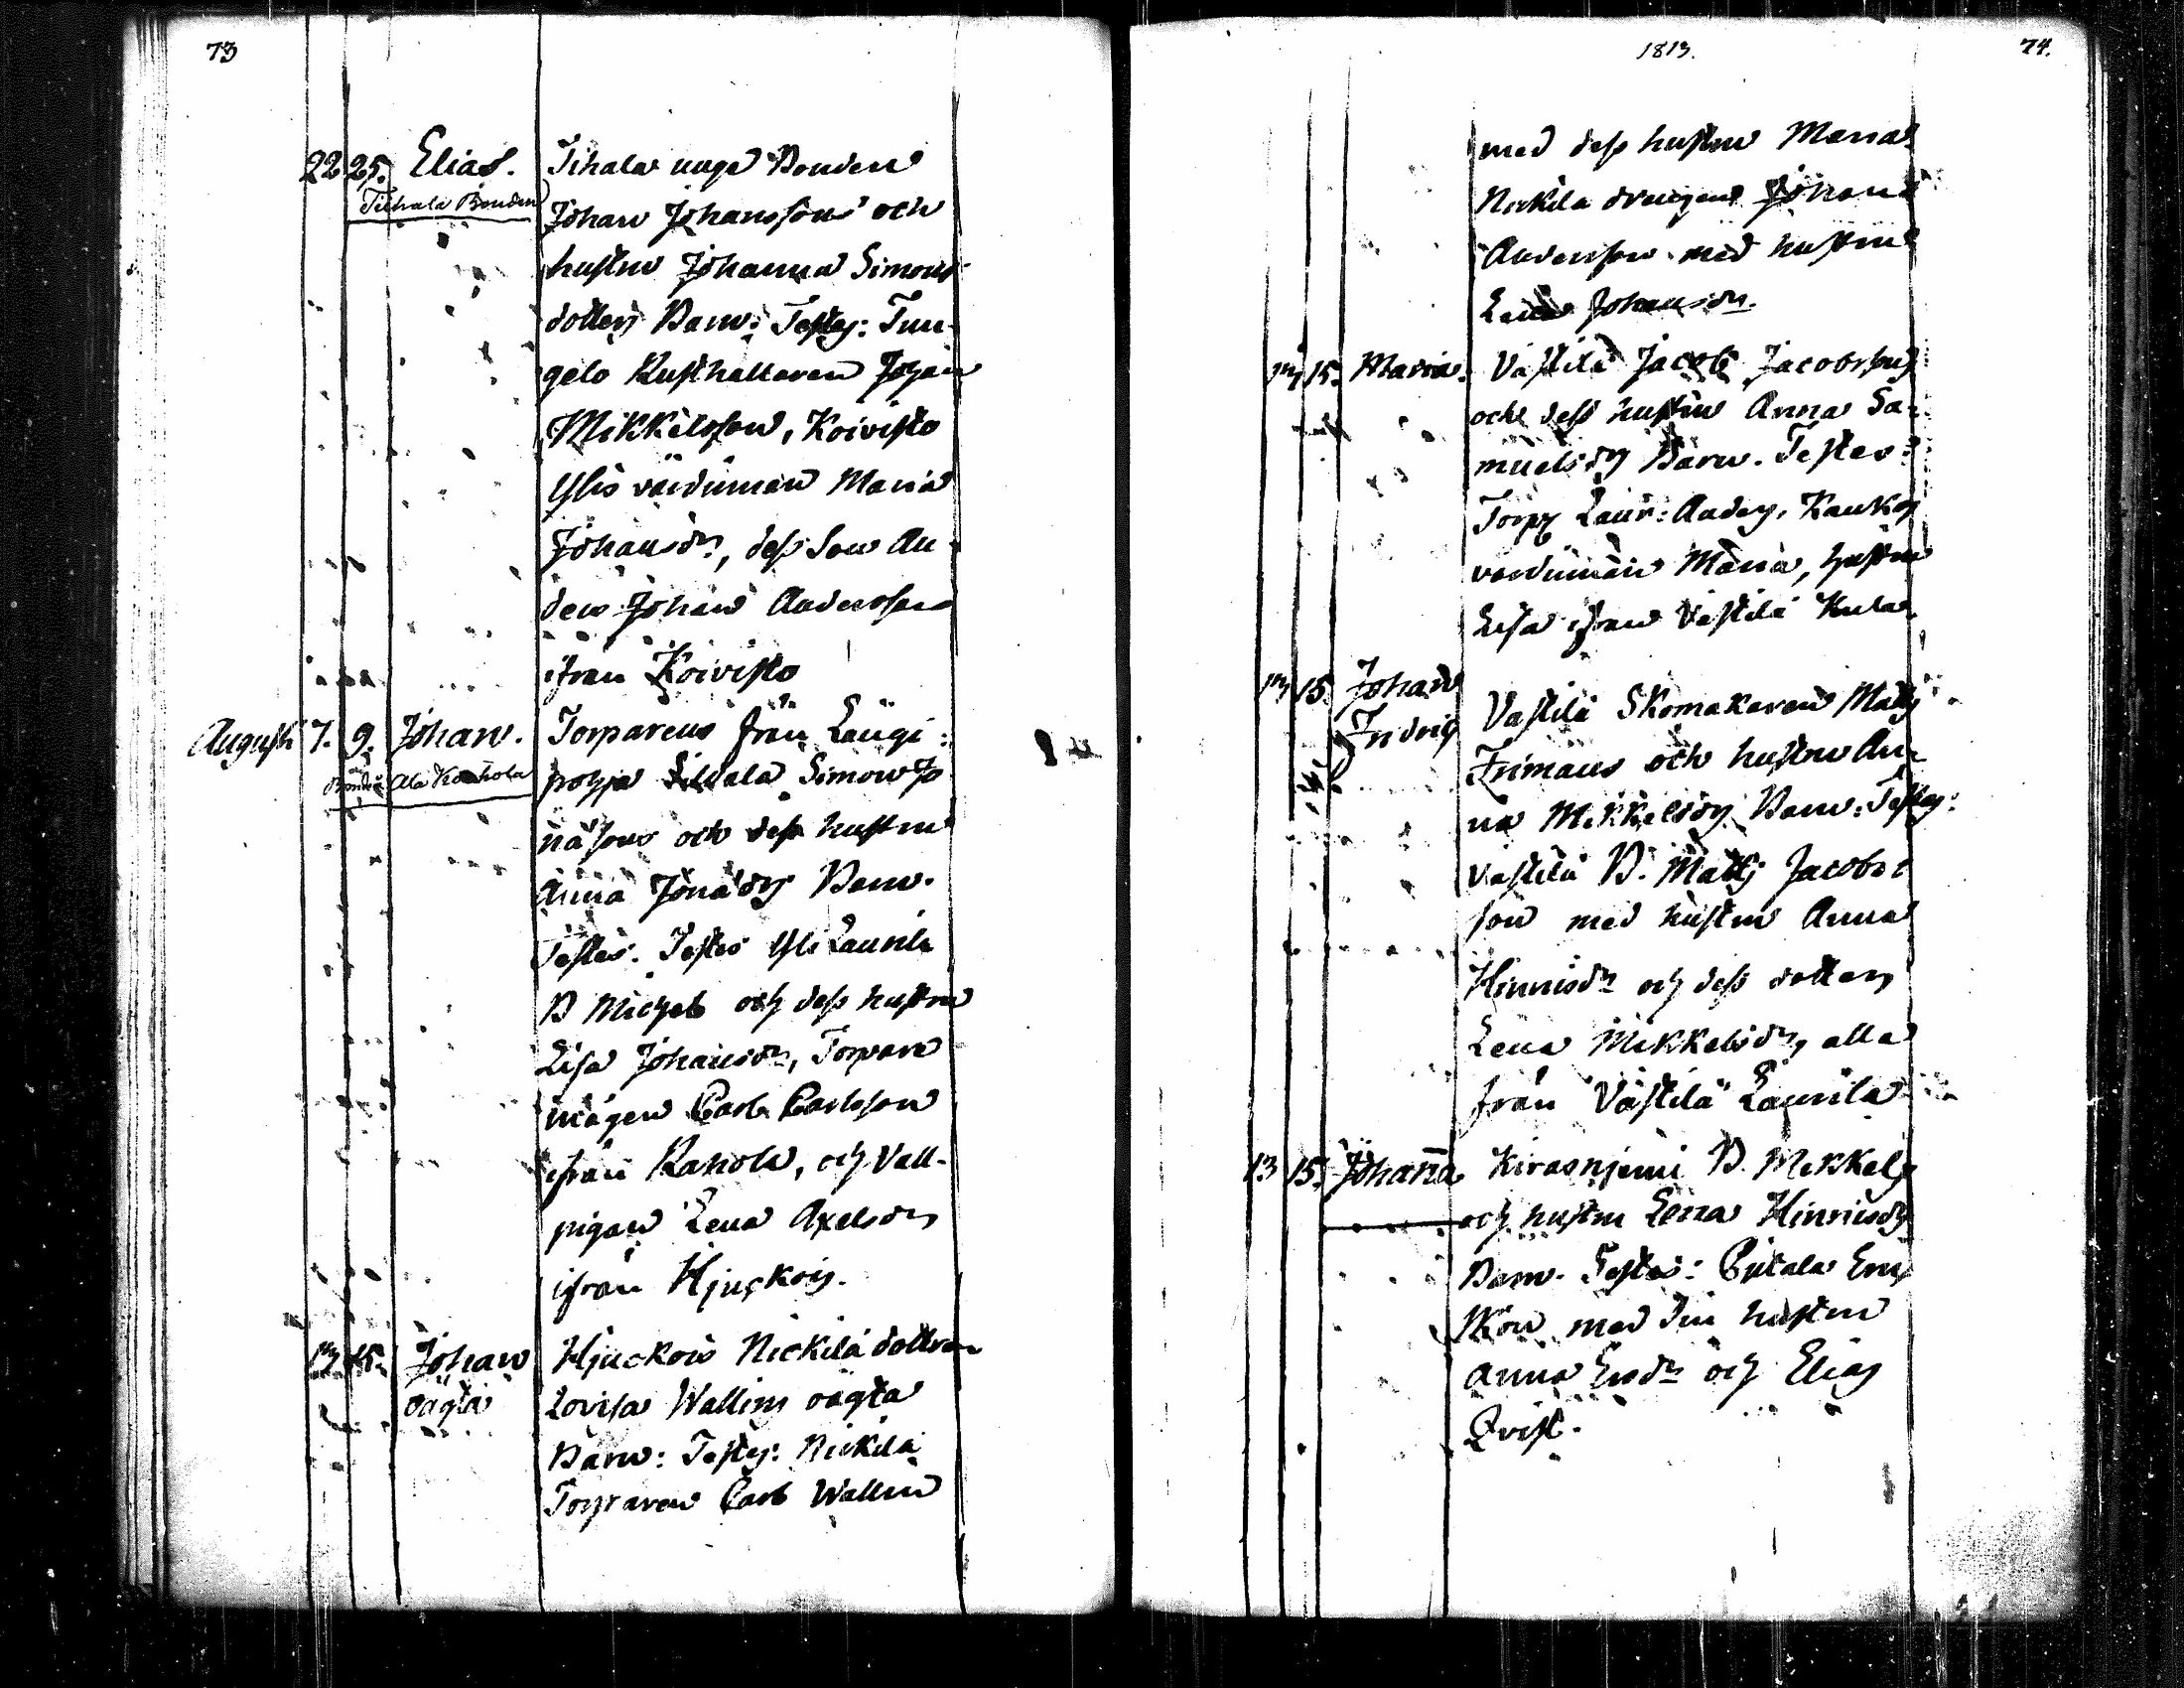 73
22 25. Elias. Tihala unga Bonden
Tiihala Bonden
Johan Johanssons och
hustru Johanna Simons
dotters Barn: Testes: Tun-
gelo Rusthallaren Johan
Mikkelsson, Koivisto
Ylis värdinnan Maria
Johansdr, dess Son An
ders Johan Andersson
ifrån Koivisto
Augusti 7. 9. Johan. Torparens från Laugi:
Ala Kauhola pohja Simon Jo
näsons och dess hustru
Anna Jonädr Barn.
Testes. Testes Yli Laurila
B Michel och dess hustru
Lisa Johansdr, Torpare
mågen Carl Carlsson
ifrån Kahola, och Vall-
pigan Lena Axelsdr
ifrån Hjuckois.
13 15. Johan Hjuckois Nickilä dottren
oägta Lovisa Wallins oägta
Barn: Testes: Nickilä
Torparen Carl Wallin
1813. 74.
med dess hustru Maria
Nickilä drängen Johan
Andersson med hustru
Lena Johansdr.
13 15. Maria. Västilä Jacob Jacobssons
och dess hustru Anna Sa-
muelsdr Barn. Testes:
Torp Laur: Anders, Kaukos
värdinnan Maria, hustru
Lisa ifrån Västilä Kula
13 15. Johan
Fridric Västilä Skomakaren Matts
Frimans och hustru An-
na Mikkelsdr Barn: Testes:
Västilä B. Matts Jacobs
son med hustru Anna
Hinrisdr och dess dotter
Lena Mikkelsdr, alla
från Västilä Laurila
13 15. Johaña Kirasnjemi B. Mikkels
och hustru Lena Hinrisdr
Barn. Testes: Eric
med sin hustru
Anna Ersdr och Elias
Qvist.